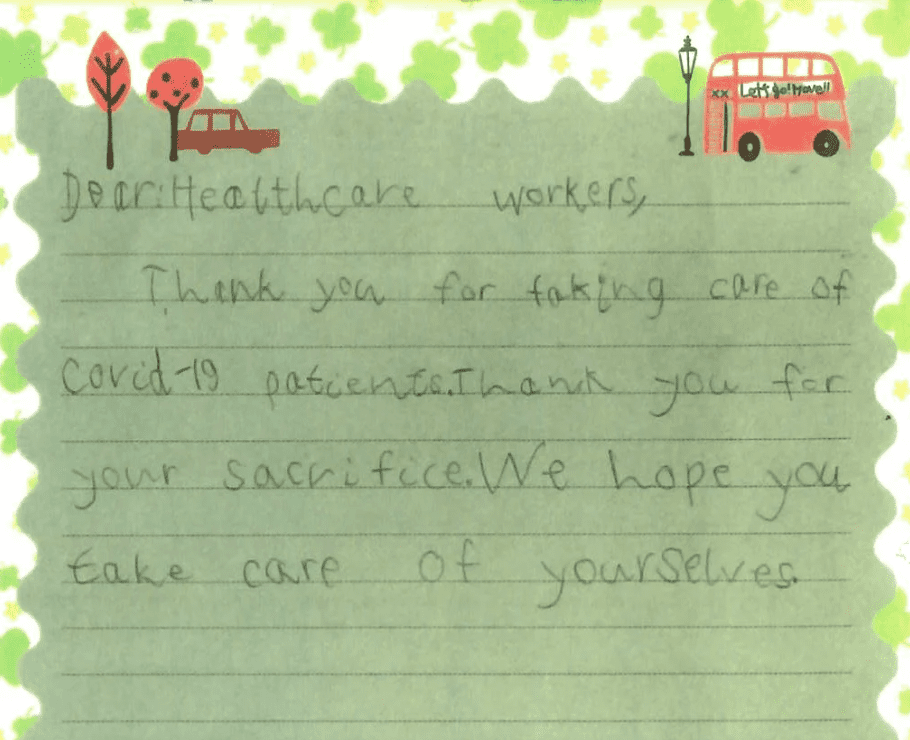 Let's go! Move!!
Dear:Healthcare workers,
Thank you for taking care of
Covid-19 patients.Thank you for
your sacrifice.We hope you
take care of yourselves.